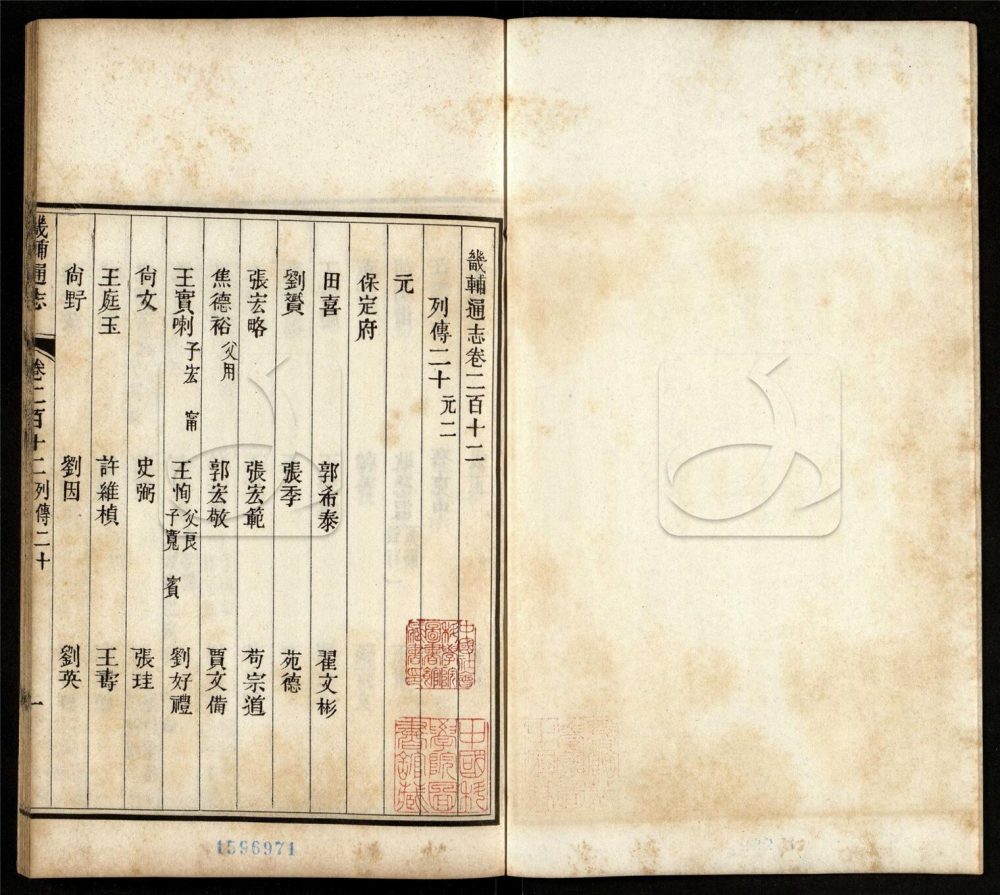 畿輔通志卷二百十二
列傳二十 元二
元
保定府
田喜 郭希泰 翟文彬
劉贇 張季 苑德
張宏略 張宏範 苟宗道
焦德裕 父用 郭宏敬 賈文備
王實喇 子宏 甯 王恂 父良 子寬 賓 劉好禮
尙文 史弼 張珪
王庭玉 許維楨 王壽
尙野 劉因 劉英
畿輔通志 卷二百十二 列傳二十 一
中國科學院圖書館藏
1596971